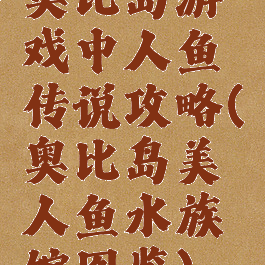 奥比岛游
戏中人鱼
传说攻略(
奥比岛美
人鱼水族
馆图鉴)